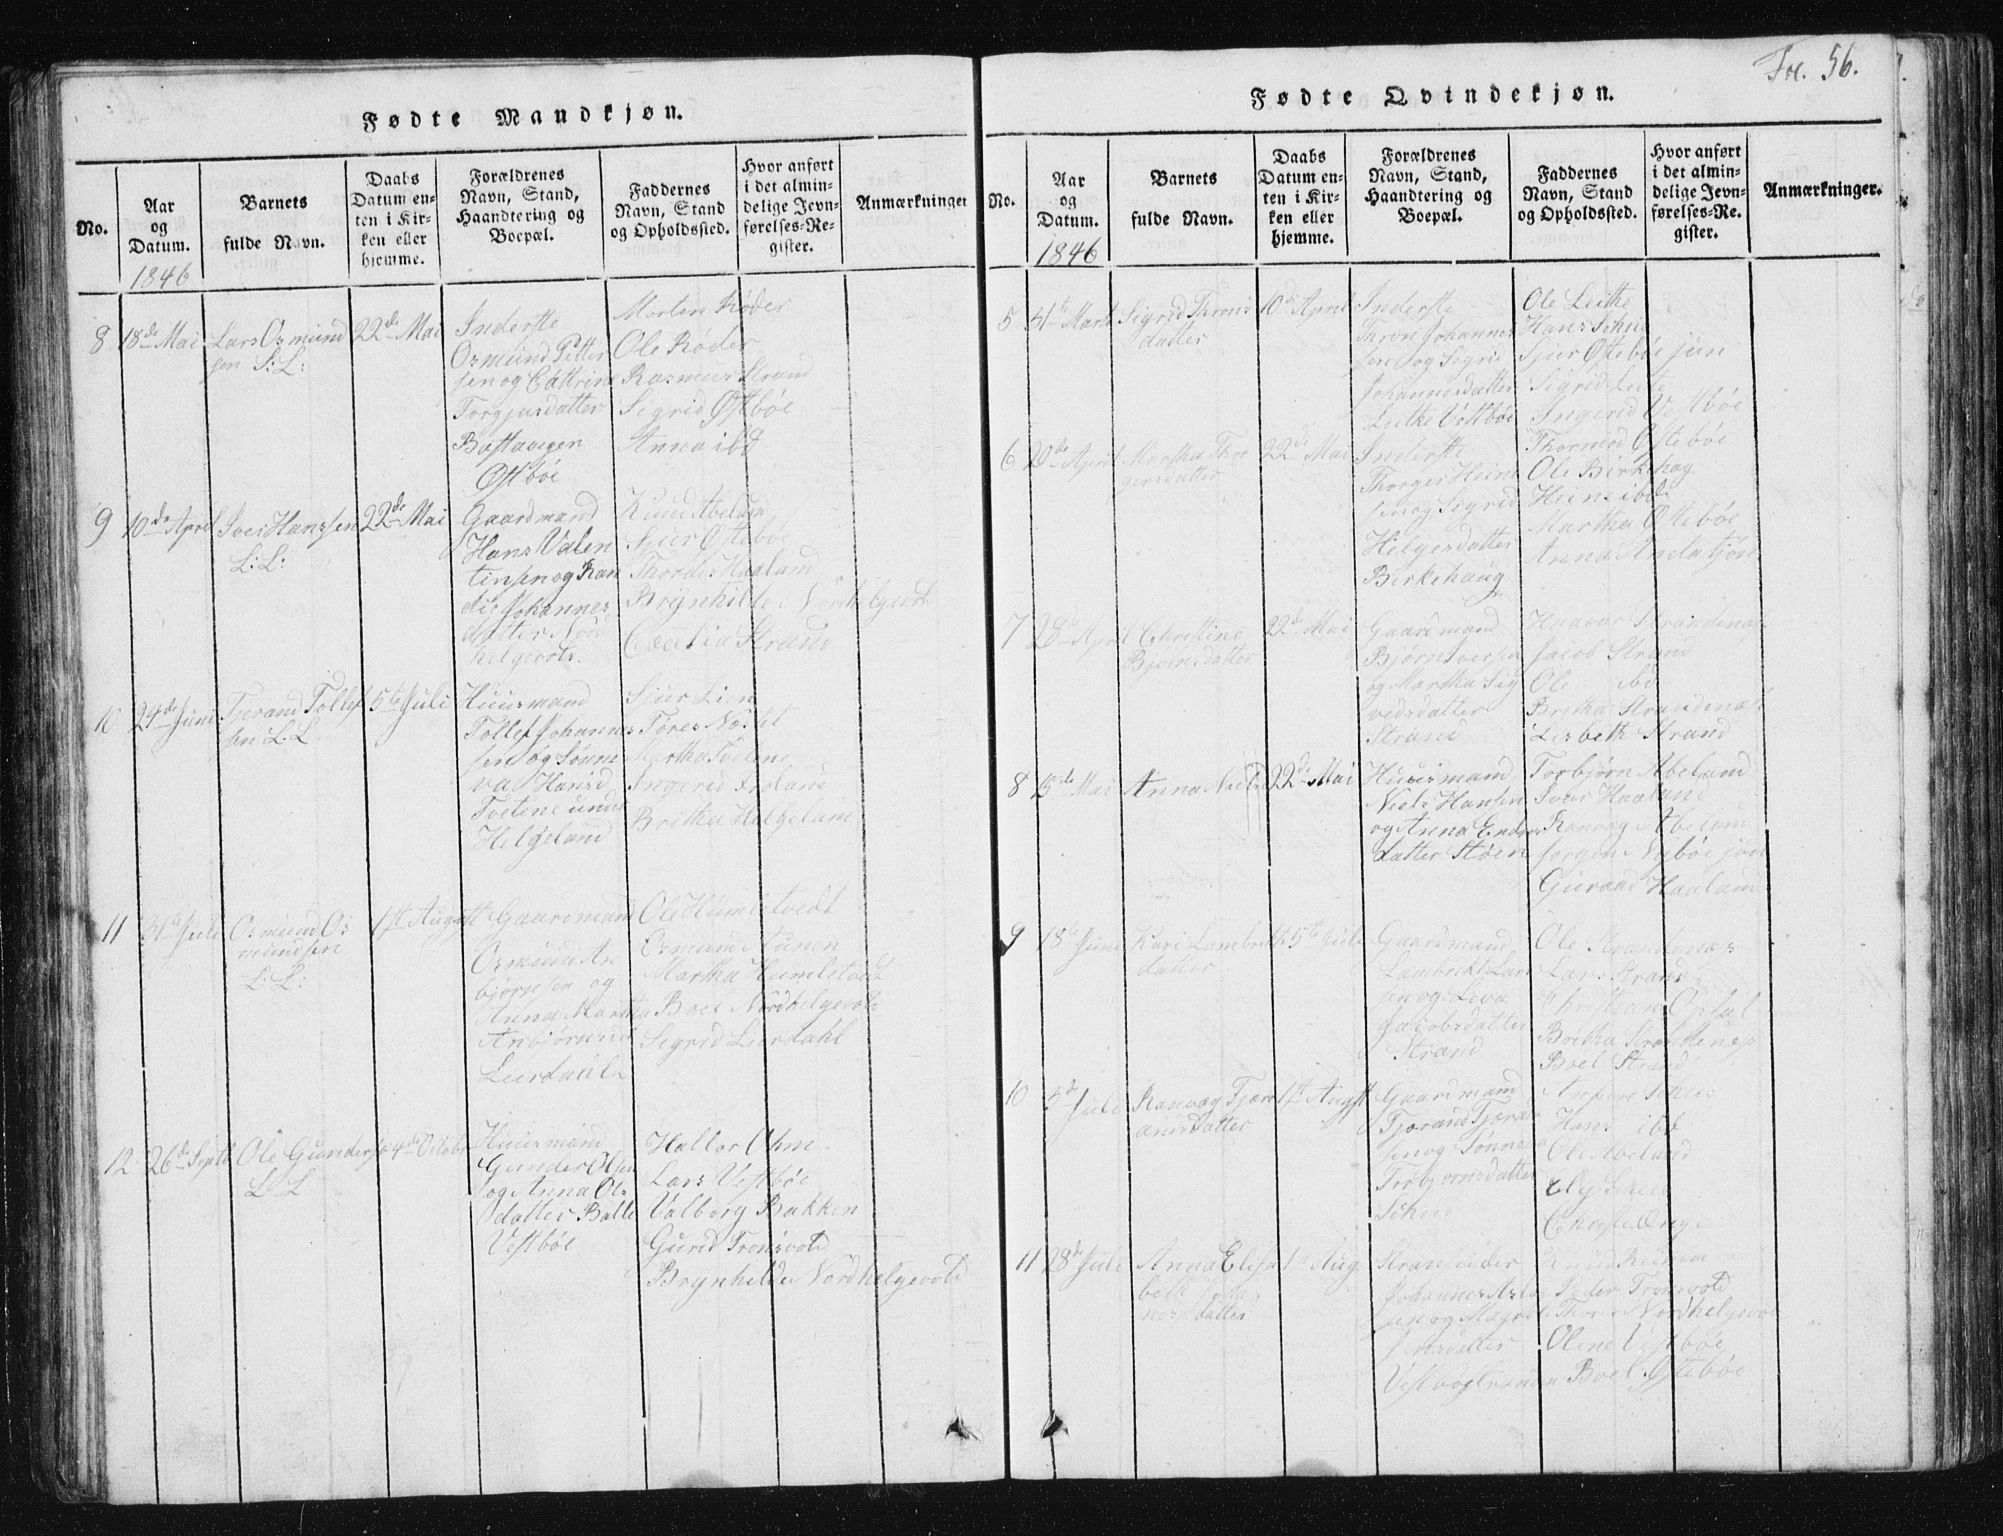 Fol. 56.
Fødte Mandkjøn.
No.
Aar
og
Datum.
1846
Barnets
fulde Navn.
Daabs
Datum en-
ten i Kir-
ken eller
hjemme.
Forældrenes
Navn, Stand,
Haandtering og
Boepæl.
Faddernes
Navn, Stand
og Opholdssted.
Hvor anført
i det almin-
delige Jevn-
førelses-Re-
gister.
Anmærkninger
8 18de Mai Lars Osmund
sen S: L:
22de Mai
Inderste
Osmund Petter
sen og Cattrine
Torgjusdatter
Østbøe
Morten Røder
Ole Røder
Rasmus Strand
Sigrid Østbøe
Anna ibd
9 10de April Iver Hanssen
L: L:
22de Mai
Gaardmand
Hans Valen
tinsen og Ran
die Johannes
datter Nord
helgevold.
Knud Abeland
Sjur Østebøe
Thordis Haaland
Brynhilde Nordhelgevold
Cecelia Strand
10 24de Juni Tjerand Tollef
sen L: L
5te Juli
Huusmand
Tollef Johannes
sen og Sønne
va Hansd
Tveitene under
Helgeland
Sjur Lien
Tøres Næstet
Martha Tveitene
Ingerid
Britha Helgeland
11 31te Juli Osmund Os
mundsen
L: L:
1st August
Gaardmand
Osmund An
bjørnsen og
Anna Martha
Anbjørnsd
Leirdahl
Ole Humletvedt
Osmund
Martha Humletvedt
Boel Nordhelgevold
Sigrid Leirdahl
12 26de Septb Ole Gunders
L L
4de October
Huusmand
Gunder Olsen
og Anna Ols
datter
Vestbøe
Hallor Ohm
Lars Vestbøe
Valborg Bakken
Gurid Tronsvold
Brynhilde Nordhelgevold
Fødte Qvindekjøn.
No.
Aar
og
Datum.
1846
Barnets
fulde Navn.
Daabs
Datum en-
ten i Kir-
ken eller
hjemme.
Forældrenes
Navn, Stand,
Haandtering og
Boepæl.
Faddernes
Navn, Stand
og Opholdssted.
Hvor anført
i det almin-
delige Jevn-
førelses-Re-
gister.
Anmærkninger.
5 31te Marts Sigrid Throns
datter
10de April
Inderste
Thron Johannes
sen og Sigrie
Johannesdatter
Leithe Vestbøe
Ole Leithe
Hans Scheie
Sjur Østebøe jun
Sigrid Leite
Ingerid Vestbøe
6 20de April Martha Thor
gersdatter
22de Mai
Inderste
Thorger Heine
sen og Sigrid
Helgesdatter
Birkehaug
Thormod Østebøe
Ole Birkehag
Heine ibd
Martha Østebøe
Anna
7 28de April Christine
Bjørnsdatter
22de Mai
Gaardmand
Bjørn Iversen
og Martha Sig
vedsdatter
Strand
Haavar Strandenæs
Jacob Strand
Ole ibd
Britha Strandenæs
Lisbeth Strand
8 15de Mai Anna
22de Mai
Huusmand
Niels Hansen
og Anna Endres
datter Støen
Torbjørn Abeland
Iver Haaland
Ranvæg Abeland
Jørgen Nybøe jun
Guraad Haaland
9 18de Juni Kari Lambrikts
datter
5te Juli
Gaardmand
Lambrikt Lars
sen og Liva
Jacobsdatter
Strand
Ole Strandenæs
Lars Strand
Christian Opsal
Britha Strandenæs
Boel Strand
10 3de Juli Ranvæg Tjer
andsdatter
1st Augst
Gaardmand
Tjerand Tjeran
sen og Sønne
Torbjørnsdatter
Scheie
Hans ibd
Ole Abeland
Ely Scheie
11 28de Juli Anna Elisa
beth Johan
nesdatter
1st Aug
Strandsidder
Johannes
sen og
Jensdatter
Peder Tronsvold
Thore Nordhelgevold
Oline Vestbøe
Boel Østebøe